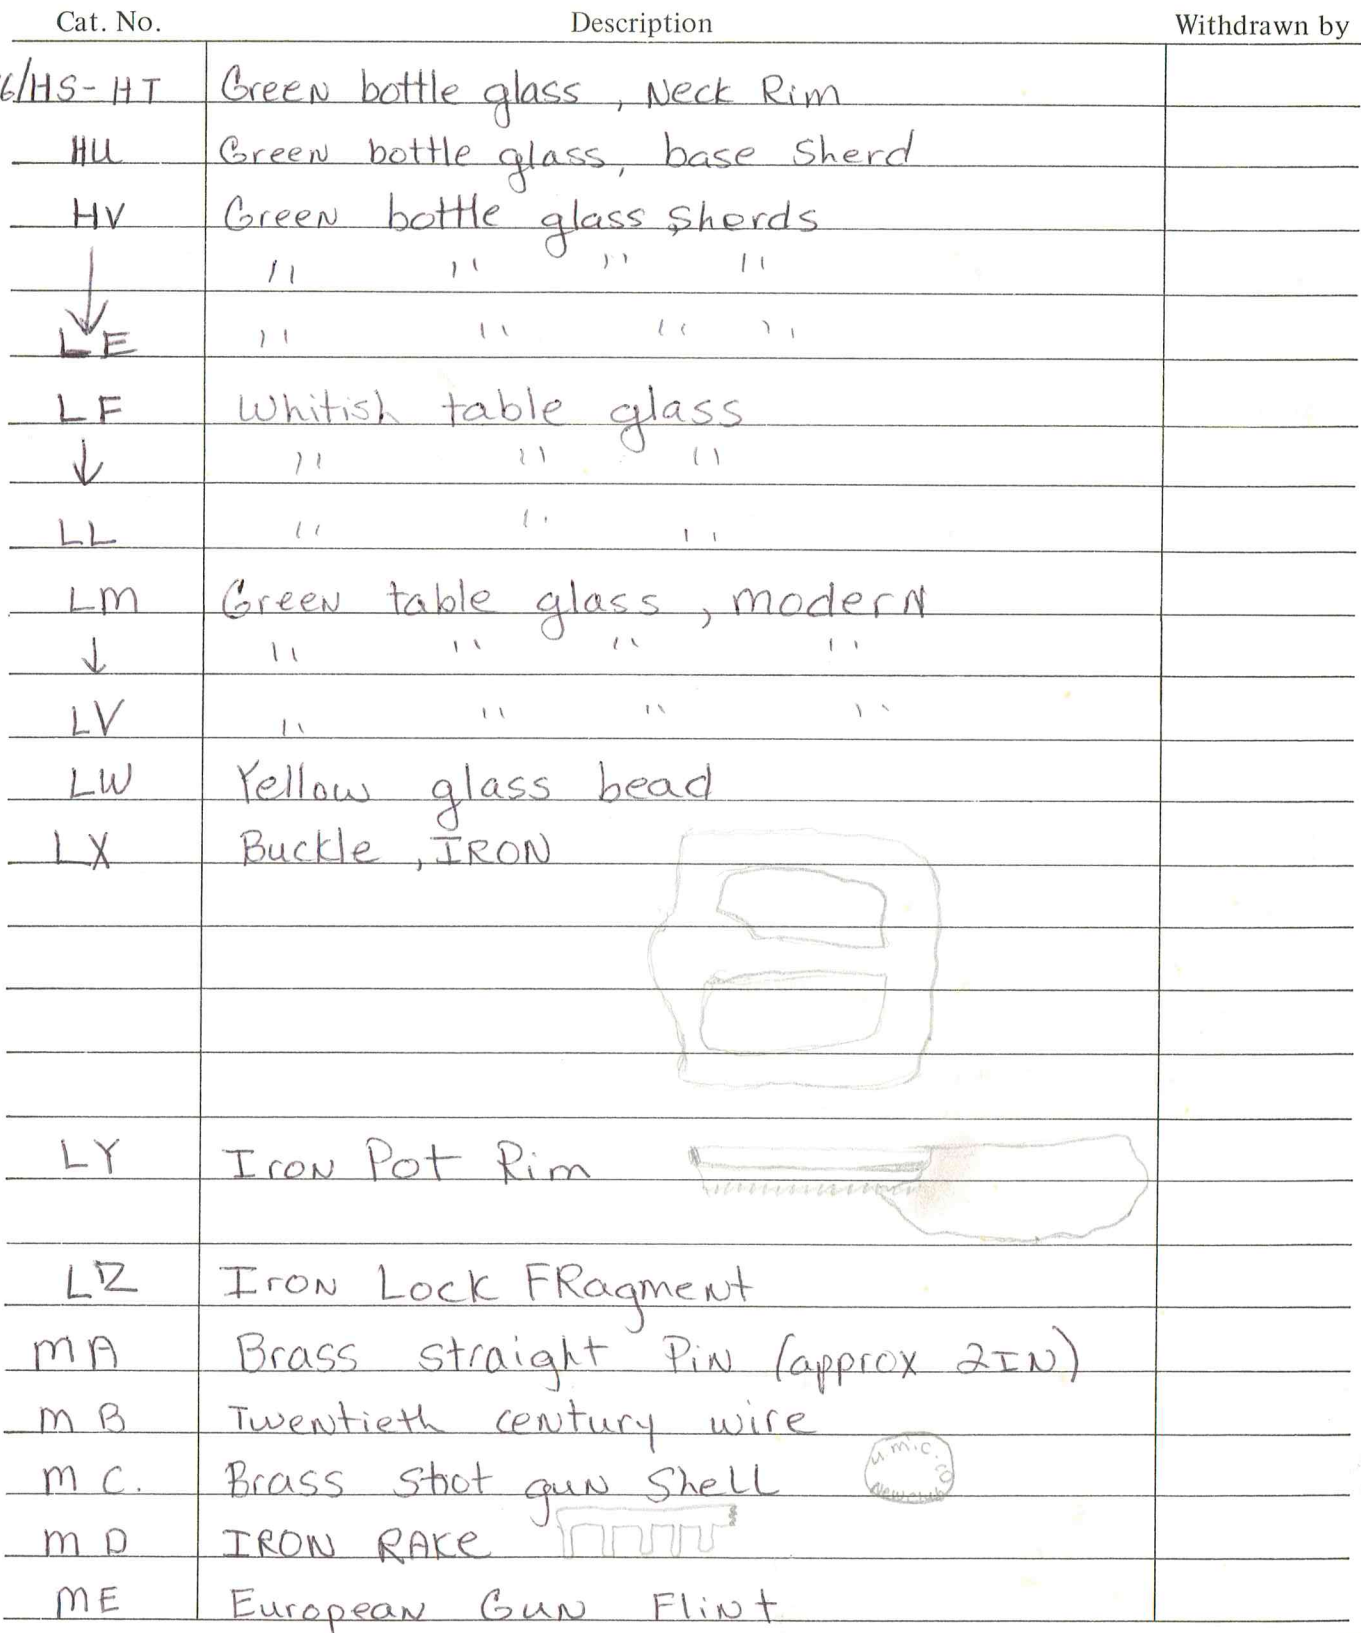 Cat. No. Description Withdrawn by
6/HS-HT Green bottle glass, Neck Rim
HU Green bottle glass, base sherd
HV Green bottle glass sherds
↓ " " " "
LE " " " "
LF Whitish table glass
↓ " " "
LL " " "
LM Green table glass, modern
↓ " " " "
LV " " " "
LW Yellow glass bead
LX Buckle, IRON
LY Iron Pot Rim
LZ Iron Lock FRagment
MA Brass straight Pin (approx 2IN)
MB Twentieth century wire
MC. Brass shot gun shell
U.M.C.CO
New Club
MD IRON RAKE
ME European Gun Flint